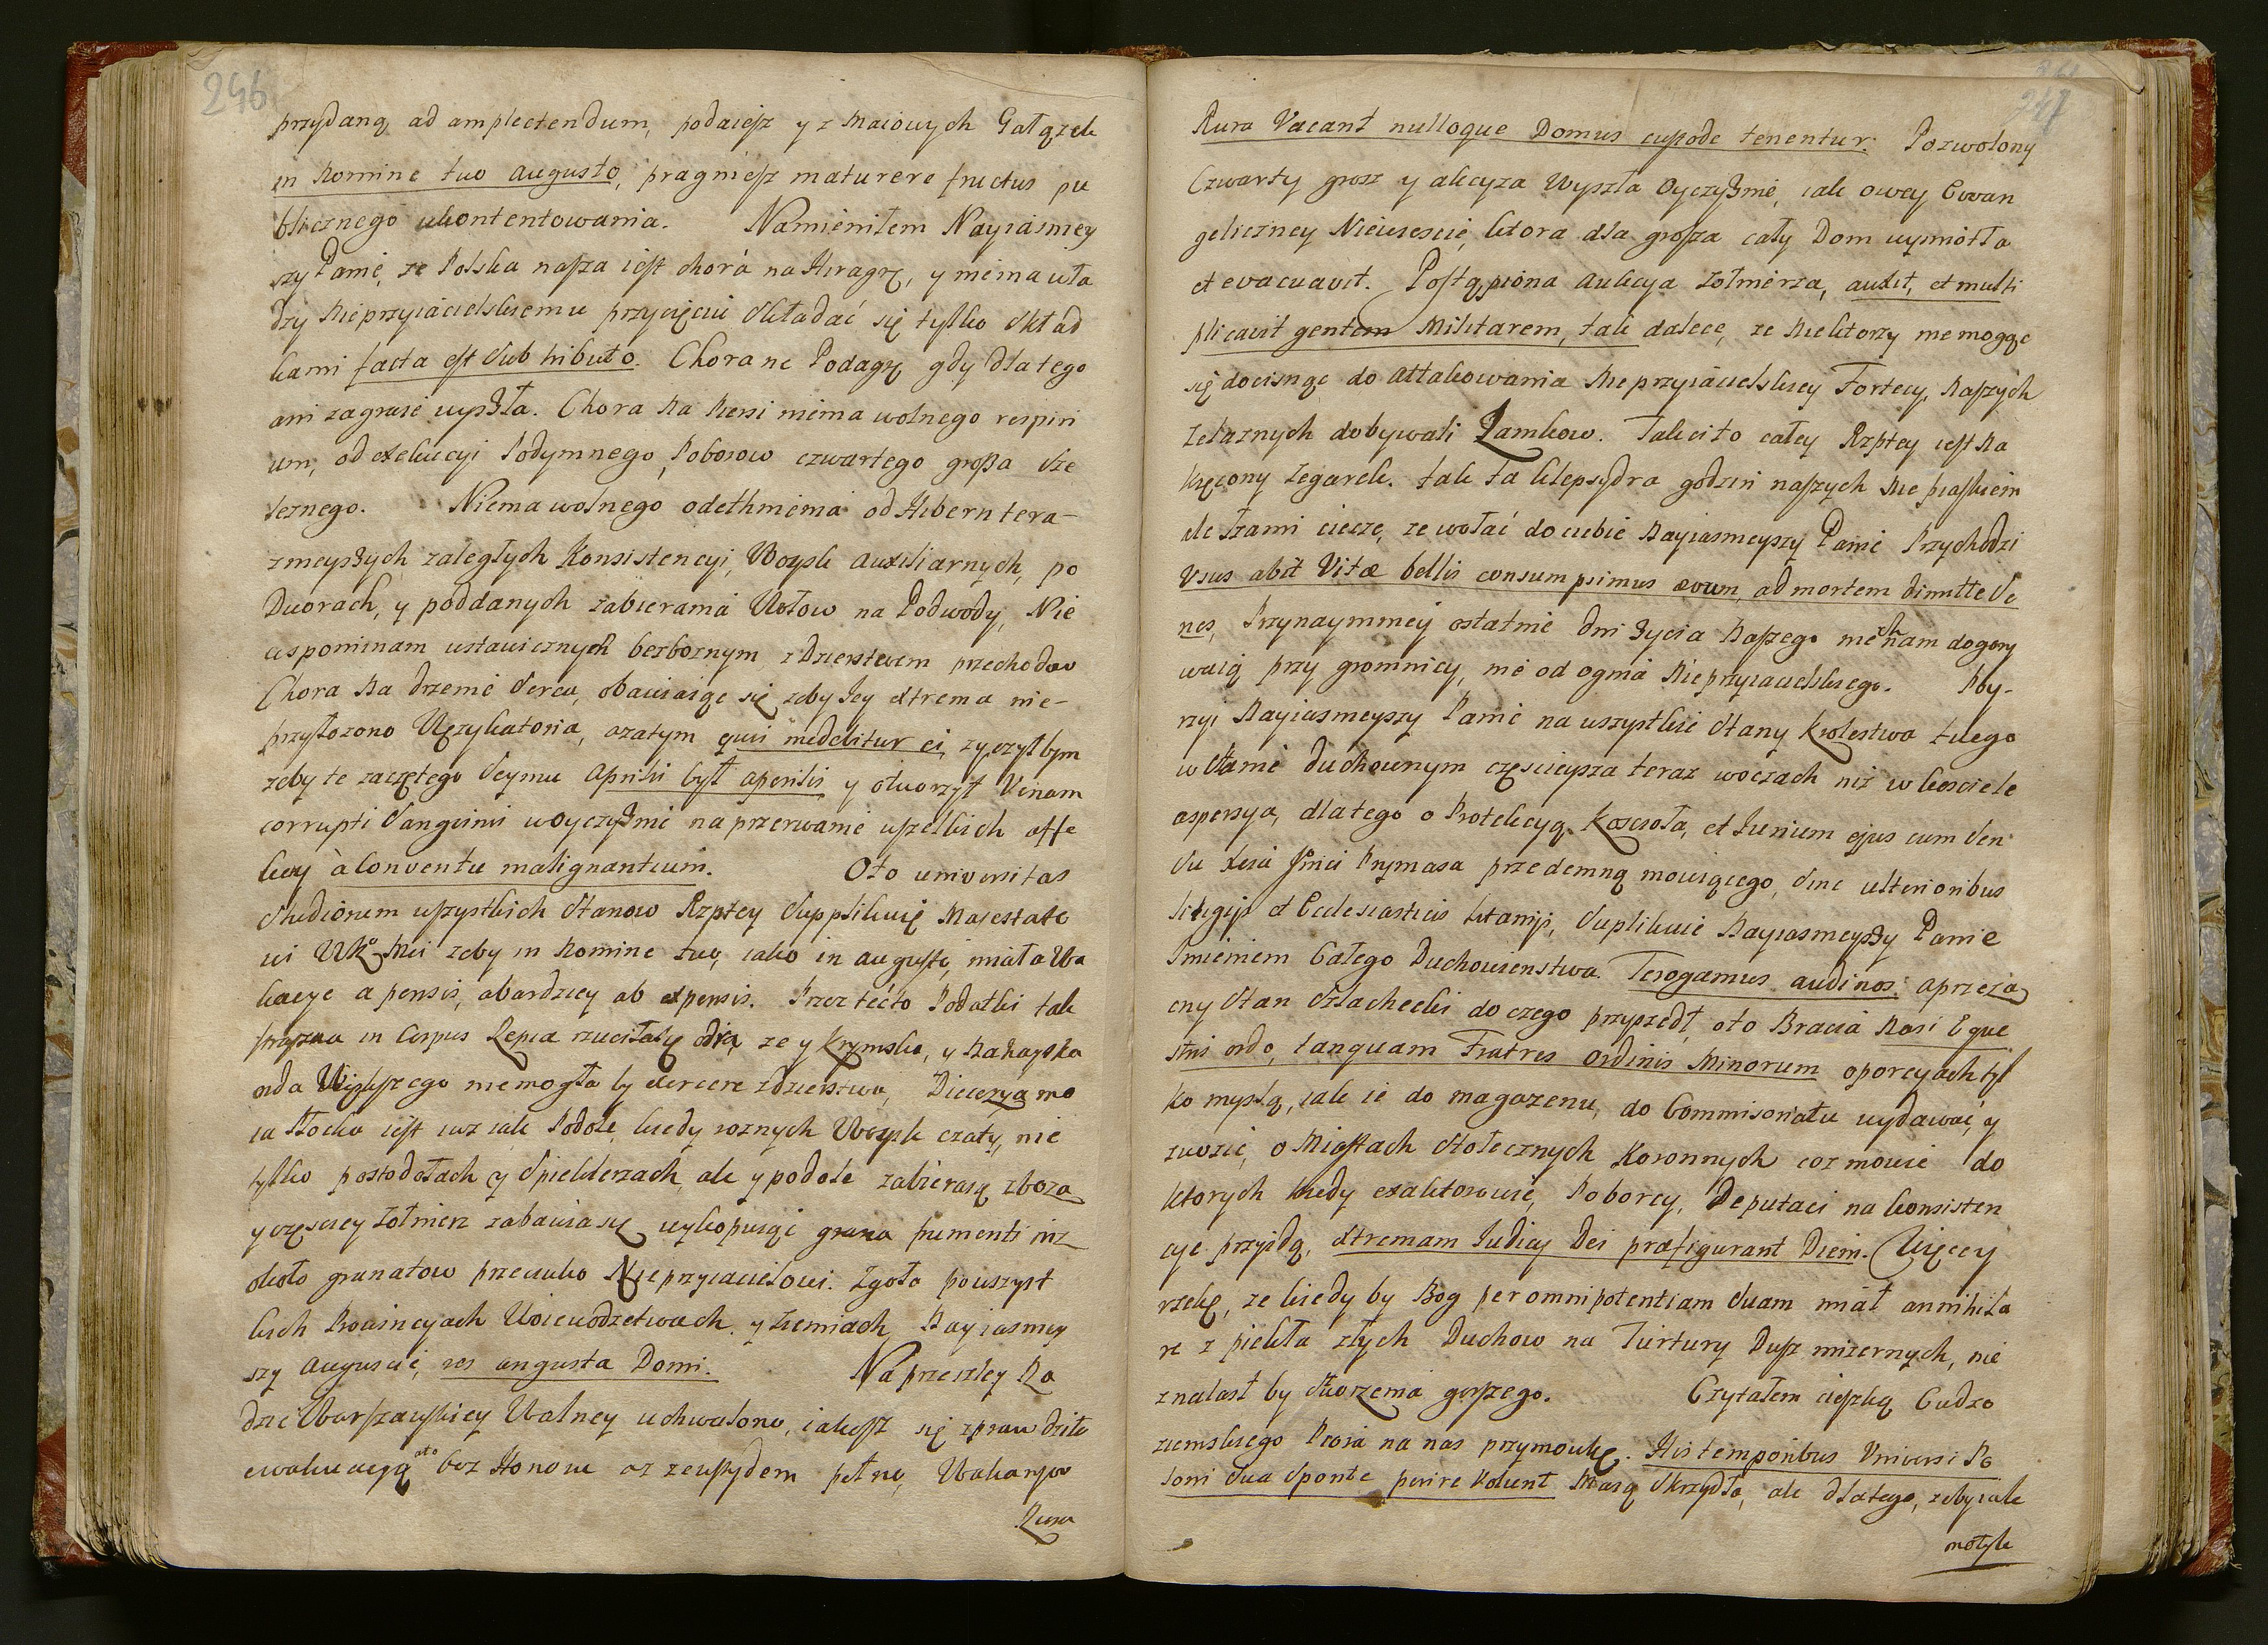 246
przydaną ad amplectendum, podaiesz y z Maiowych Gałązek
in Nomine tuo Augusto, pragniesz maturere fructus pu
blicznego ukontentowania. Namieniłem Nayiasniey
szy Panie, ze Polska nasza iest chora na Hiragrę, y niema wła
dzy Nieprzyiacielskiemu przycięciu składać się tylko skład
kami facta est sub tributo. Chora ne Podagrę gdy dla tego
ani zagrasic wyszła. Chora na Piersi niema wolnego respiri
um, od exekucyi Podymnego, Poborow czwartego grosza
Niema wolnego odethnienia od Hibern tera-
znieyszych zaległych Konsistencyi, Woysk Auxiliarnych, po
Dworach, y poddanych zabierania Wołow na Podwody, Nie
wspominam ustawicznych bezboznym zdzierstwem przechodow
Chora na drzenie serca, obawiaiąc się zeby Jey extrema nie-
przyłozono Wezykatoria, azatym quis medebitur ei, zyczył bym
zeby te zaczętego Seymu Aprilis był aperilis y otworzył Venam
corrupti sanguinis w Oyczyznie na przerwanie wszelkich affe
kcry à Conventu malignantium. Oto universitas
studiorum wszystkich Stanow Rzptey supplikuię Maiestato
wi WKo Mci zeby in Nomine tuo, iako in augusto, miała Wa
kacye a pensis, abardziey ab expensis. Przez teć to Podatki tak
straszna in Corpus Lepra rzuciła się, ze y Krymska, y Nahayska
orda Większego niemogła by exercere zdzierstwa, Diecezya mo
ia Płocka iest iuz iak Podole, kiedy roznych Woysk czaty, nie
tylko postodołach y Spichlerzach, ale y podole zabieraią zboza
y częsciey Zołnierz zabawia się wykopuiąc grana frumenti niz
około granatow przeciwko Nieprzyiacielowi. Zgoła po wszyst
kich Prowincyach Woiewodzctwach, y Ziemiach, Nayiasniey
szy Auguscie, res angusta Domi. Na przeszłey Ra
dzie Warszawskiey Walney uchwalono, iakosz się zprawdziło
ewakuacyą ato bez Honoru az ze wstydem pełno, Wakansow
Rura

247
Rura Vacant nulloque Domus custode tenentur. Pozwolony
Czwarty grosz y akcyza Wyszła Oyczyznie, iak owey Ewan
geliczney Niewiescie, ktora dla grosza cały Dom wymiotła
et evacuavit. Postąpiona aukcya zołnierza, auxit, et multi
plicavit gentem Militarem, tak dalece, ze Niektorzy niemogąc
się docisnąc do attakowania Nieprzyiacielskiey Fortecy, Naszych
zelaznych dobywali Zamkow. Takci to całey Rzptey iest Na
kręcony Zegarek. tak ta klepsydra godzin naszych Nie piaskiem
ale Łzami ciecze, ze wołać do ciebie Nayiasnieyszy Panie Przychodzi
Usus abit Vitæ bellis consumpsimus ævum, ad mortem dimitte Se
nes, Przynaymniey ostatnie dni Zycia Naszego niech nam dogory
waią przy gromnicy, nie od ognia Nieprzyiacielskiego. Poy-
rzyi Nayiasnieyszy Panie na wszystkie Stany Krolestwa twego
w Stanie duchownym częscieysza teraz woczach niz w kosciele
aspersya, dlatego o Protekcyą Koscioła, et Iurium ejus cum sen
su Xcia Jmci Prymasa przedemną mowiącego, sine ulterioribus
Religijs et Ecclesiasticis Litanijs, suplikuie Nayiasnieyszy Panie
Imieniem Całego Duchowienstwa. Te rogamus audi nos. a przeza
cny Stan Szlachecki do czego przyszedł, oto Bracia Nasi Eque
stris ordo, tanquam Fratres Ordinis Minorum o porcyach tyl
ko myslą, iak ie do magazenu, do Commisoriatu wydawać, y
zwozić, o Miastach Stołecznych Koronnych coz mowić do
ktorych kiedy exaktorowie, Poborcy, Deputaci na konsisten
cye przyidą, extremam Iudicij Dei præfigurant Diem. Więcey
rzekę, ze kiedy by Bog per omnipotentiam suam miał annihila
re z piekła złych Duchow na Turtury Dusz mizernych, nie
znalast by stworzenia gorszego. Czytałem cięszką Cudzo
ziemskiego Piora na nas przymowkę. His temporibus Universi Po
loni sua sponte perire Volunt Maią Skrzydła, ale dlatego, zeby iak
motyle